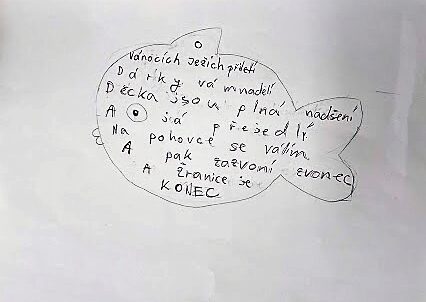 Vánocích Ježich přiletí
Dárky vám nadělí
Děcka jsou plná nadšení
A já přejedlý
Na pohovce se válím
A pak zazvoní zvonec
A žranice je
KONEC